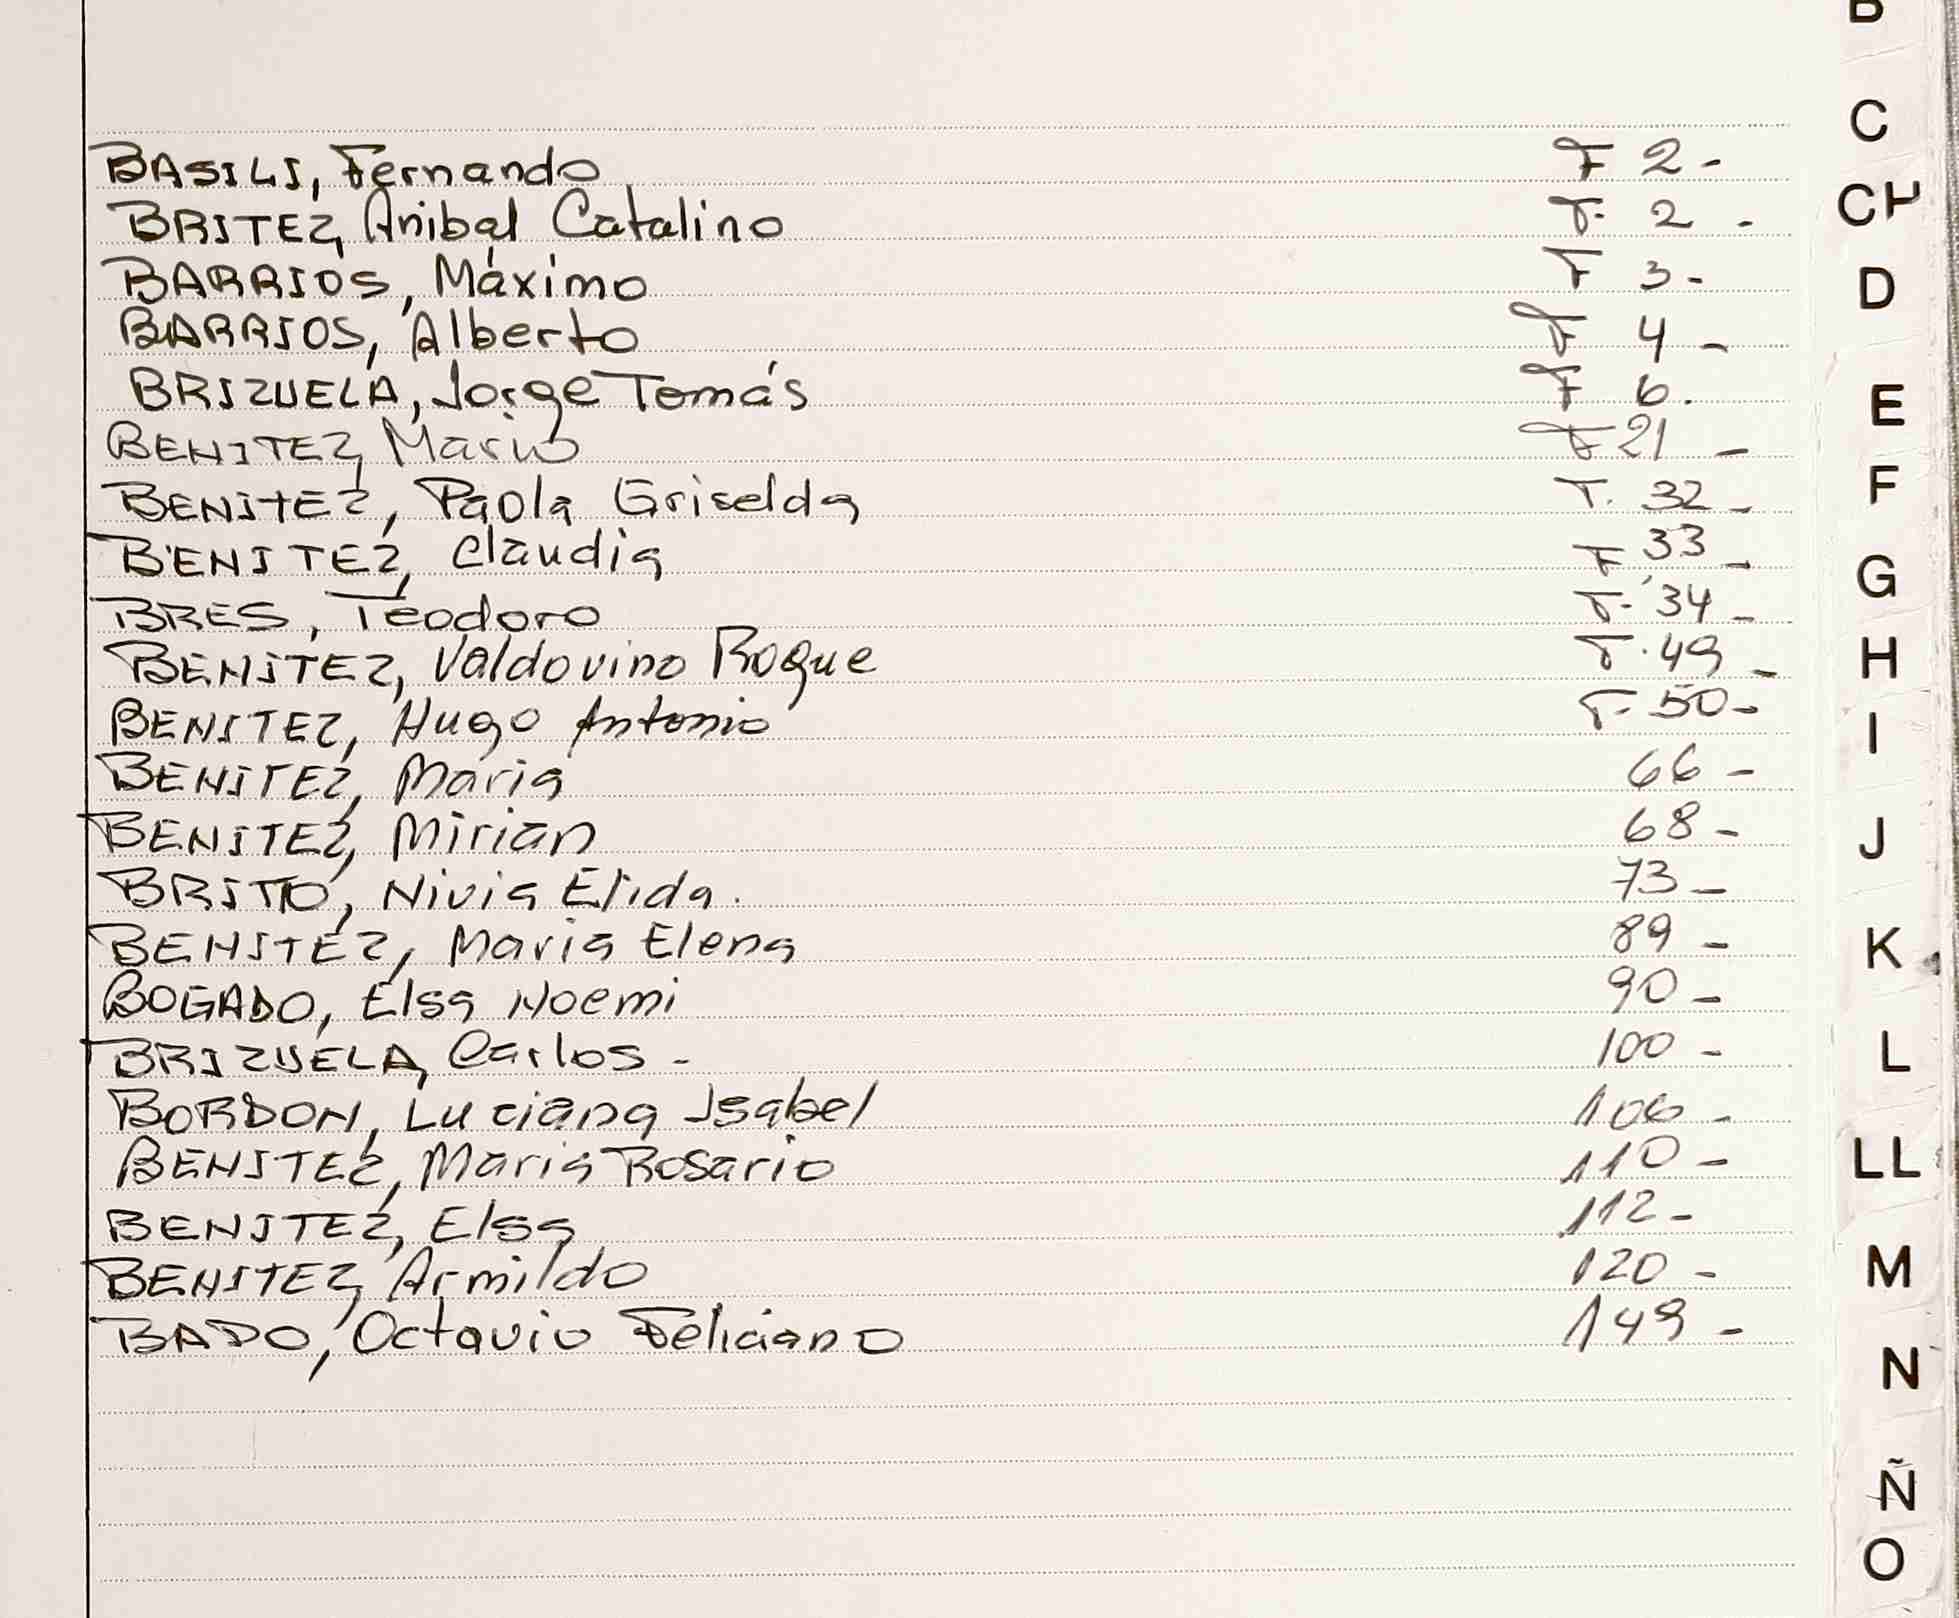 BASILI, Fernando F 2-
BRITEZ, Anibal Catalino F. 2 -
BARRIOS, Máximo F 3-
BARRIOS, Alberto F 4 -
BRIZUELA, Jorge Tomás F 6.
BENITEZ, Mario F 21 -
BENITEZ, Paola Griselda F. 32 -
BENITEZ, Claudia F 33 -
BRES, Teodoro F. 34 -
BENITEZ, Valdovino Roque F. 49 -
BENITEZ, Hugo Antonio F. 50-
BENITEZ, Maria 66 -
BENITEZ, Mirian 68 -
BRITTO, Nivia Elida. 73 -
BENITEZ, Maria Elena 89 -
BOGADO, Elsa Noemi 90 -
BRIZUELA, Carlos - 100 -
BORDON, Luciana Isabel 106 -
BENITEZ, Maria Rosario 110 -
BENITEZ, Elsa 112 -
BENITEZ, Armildo 120 -
BADO, Octavio Feliciano 149 -
B
C
CH
D
E
F
G
H
I
J
K
L
LL
M
N
Ñ
O